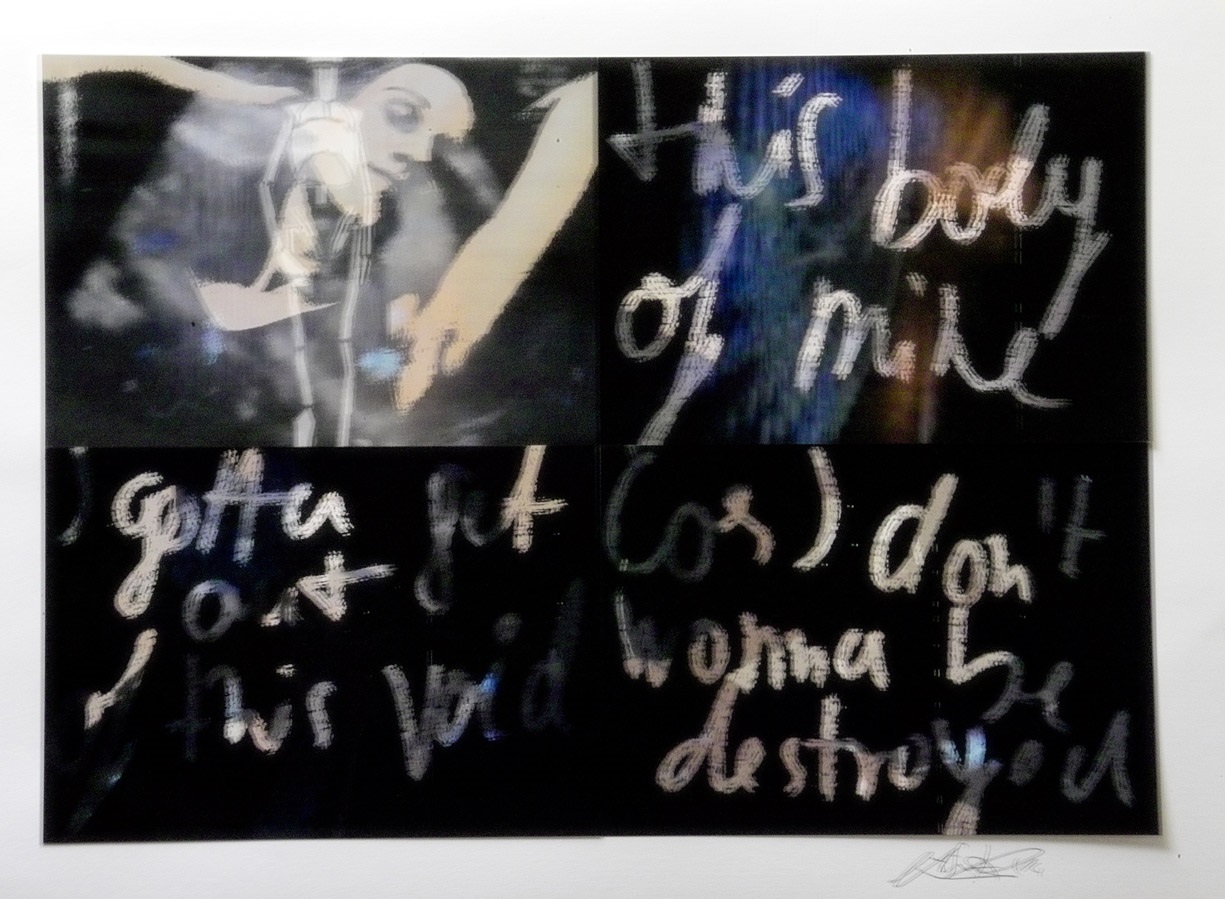 this body
of mine
gotta get
out
this void
(cos) don't
wonna be
destroyed